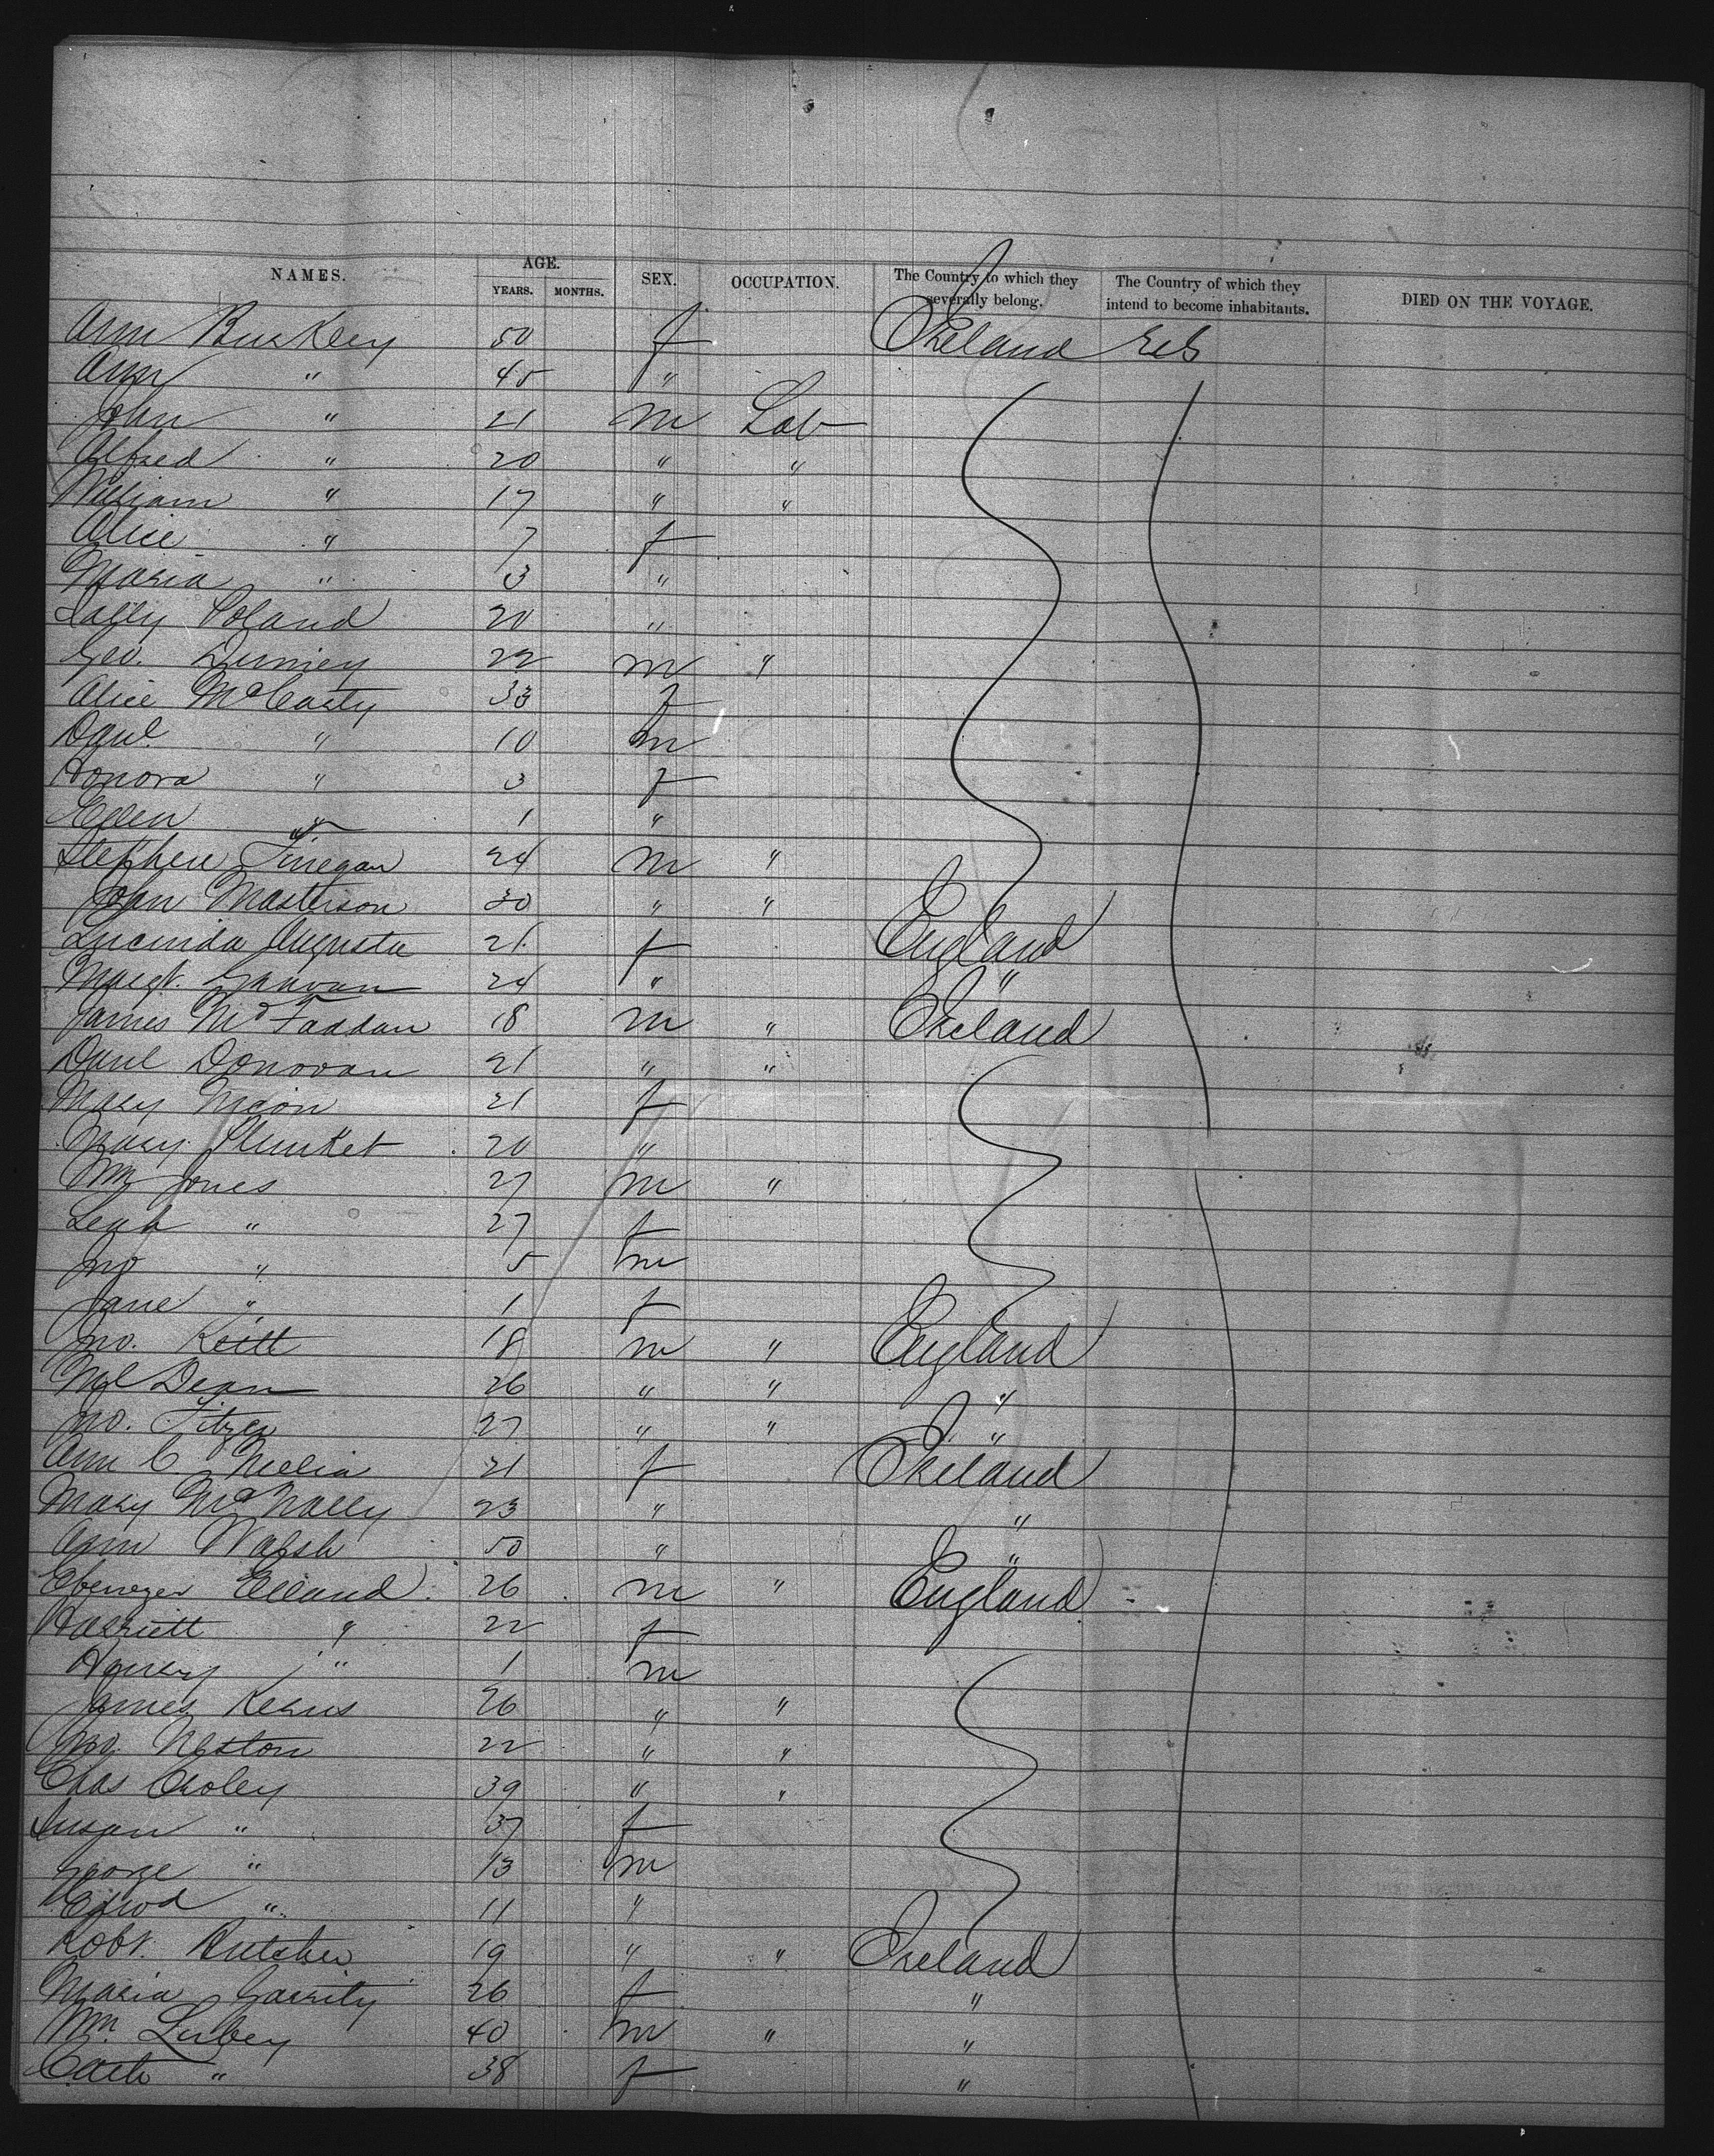 NAMES. AGE. YEARS. MONTHS. SEX. OCCUPATION. The Country to which they severally belong. The Country of which they intend to become inhabitants. DIED ON THE VOYAGE.
Ann Buckley 50 f Ireland
Ann " 45 "
John " 21 m Lab
Alfred " 20 " "
William " 17 " "
Alice " 7 f
Maria " 3 "
Sally Poland 20 "
Geo. 22 m "
Alice McCarty 33 f
Danl. " 10 m
Honora " 3 f
Ellen " 1 "
Stephen Finegan 24 m "
John Masterson 30 " "
Lucinda Augusta 21 f England
Margt. 24 " "
James McFaddan 18 m " Ireland
Danl Donovan 21 " "
Mary Nixon 21 f
Mary Plunket 20 "
Wm Jones 27 m "
Leah " 27 f
Jno " 5 m
Jane " 1 f
Jno. Keitt 18 m " England
Ml Dean 26 " " "
Jno. 27 " " "
Ann C. Melia 21 f Ireland
Mary McNally 23 " "
Ann Walsh 50 " "
Ebenezer Elland 26 m " England
Harriett " 22 f
Henry " 1 m
James Kerns 26 " "
Jno. 22 " "
Chas Croley 39 " "
Susan " 37 f
George " 13 m
Edwd " 11 "
Robt. Butcher 19 " " Ireland
Maria Garrity 26 f "
Wm. Lubey 40 m " "
Cath " 38 f "